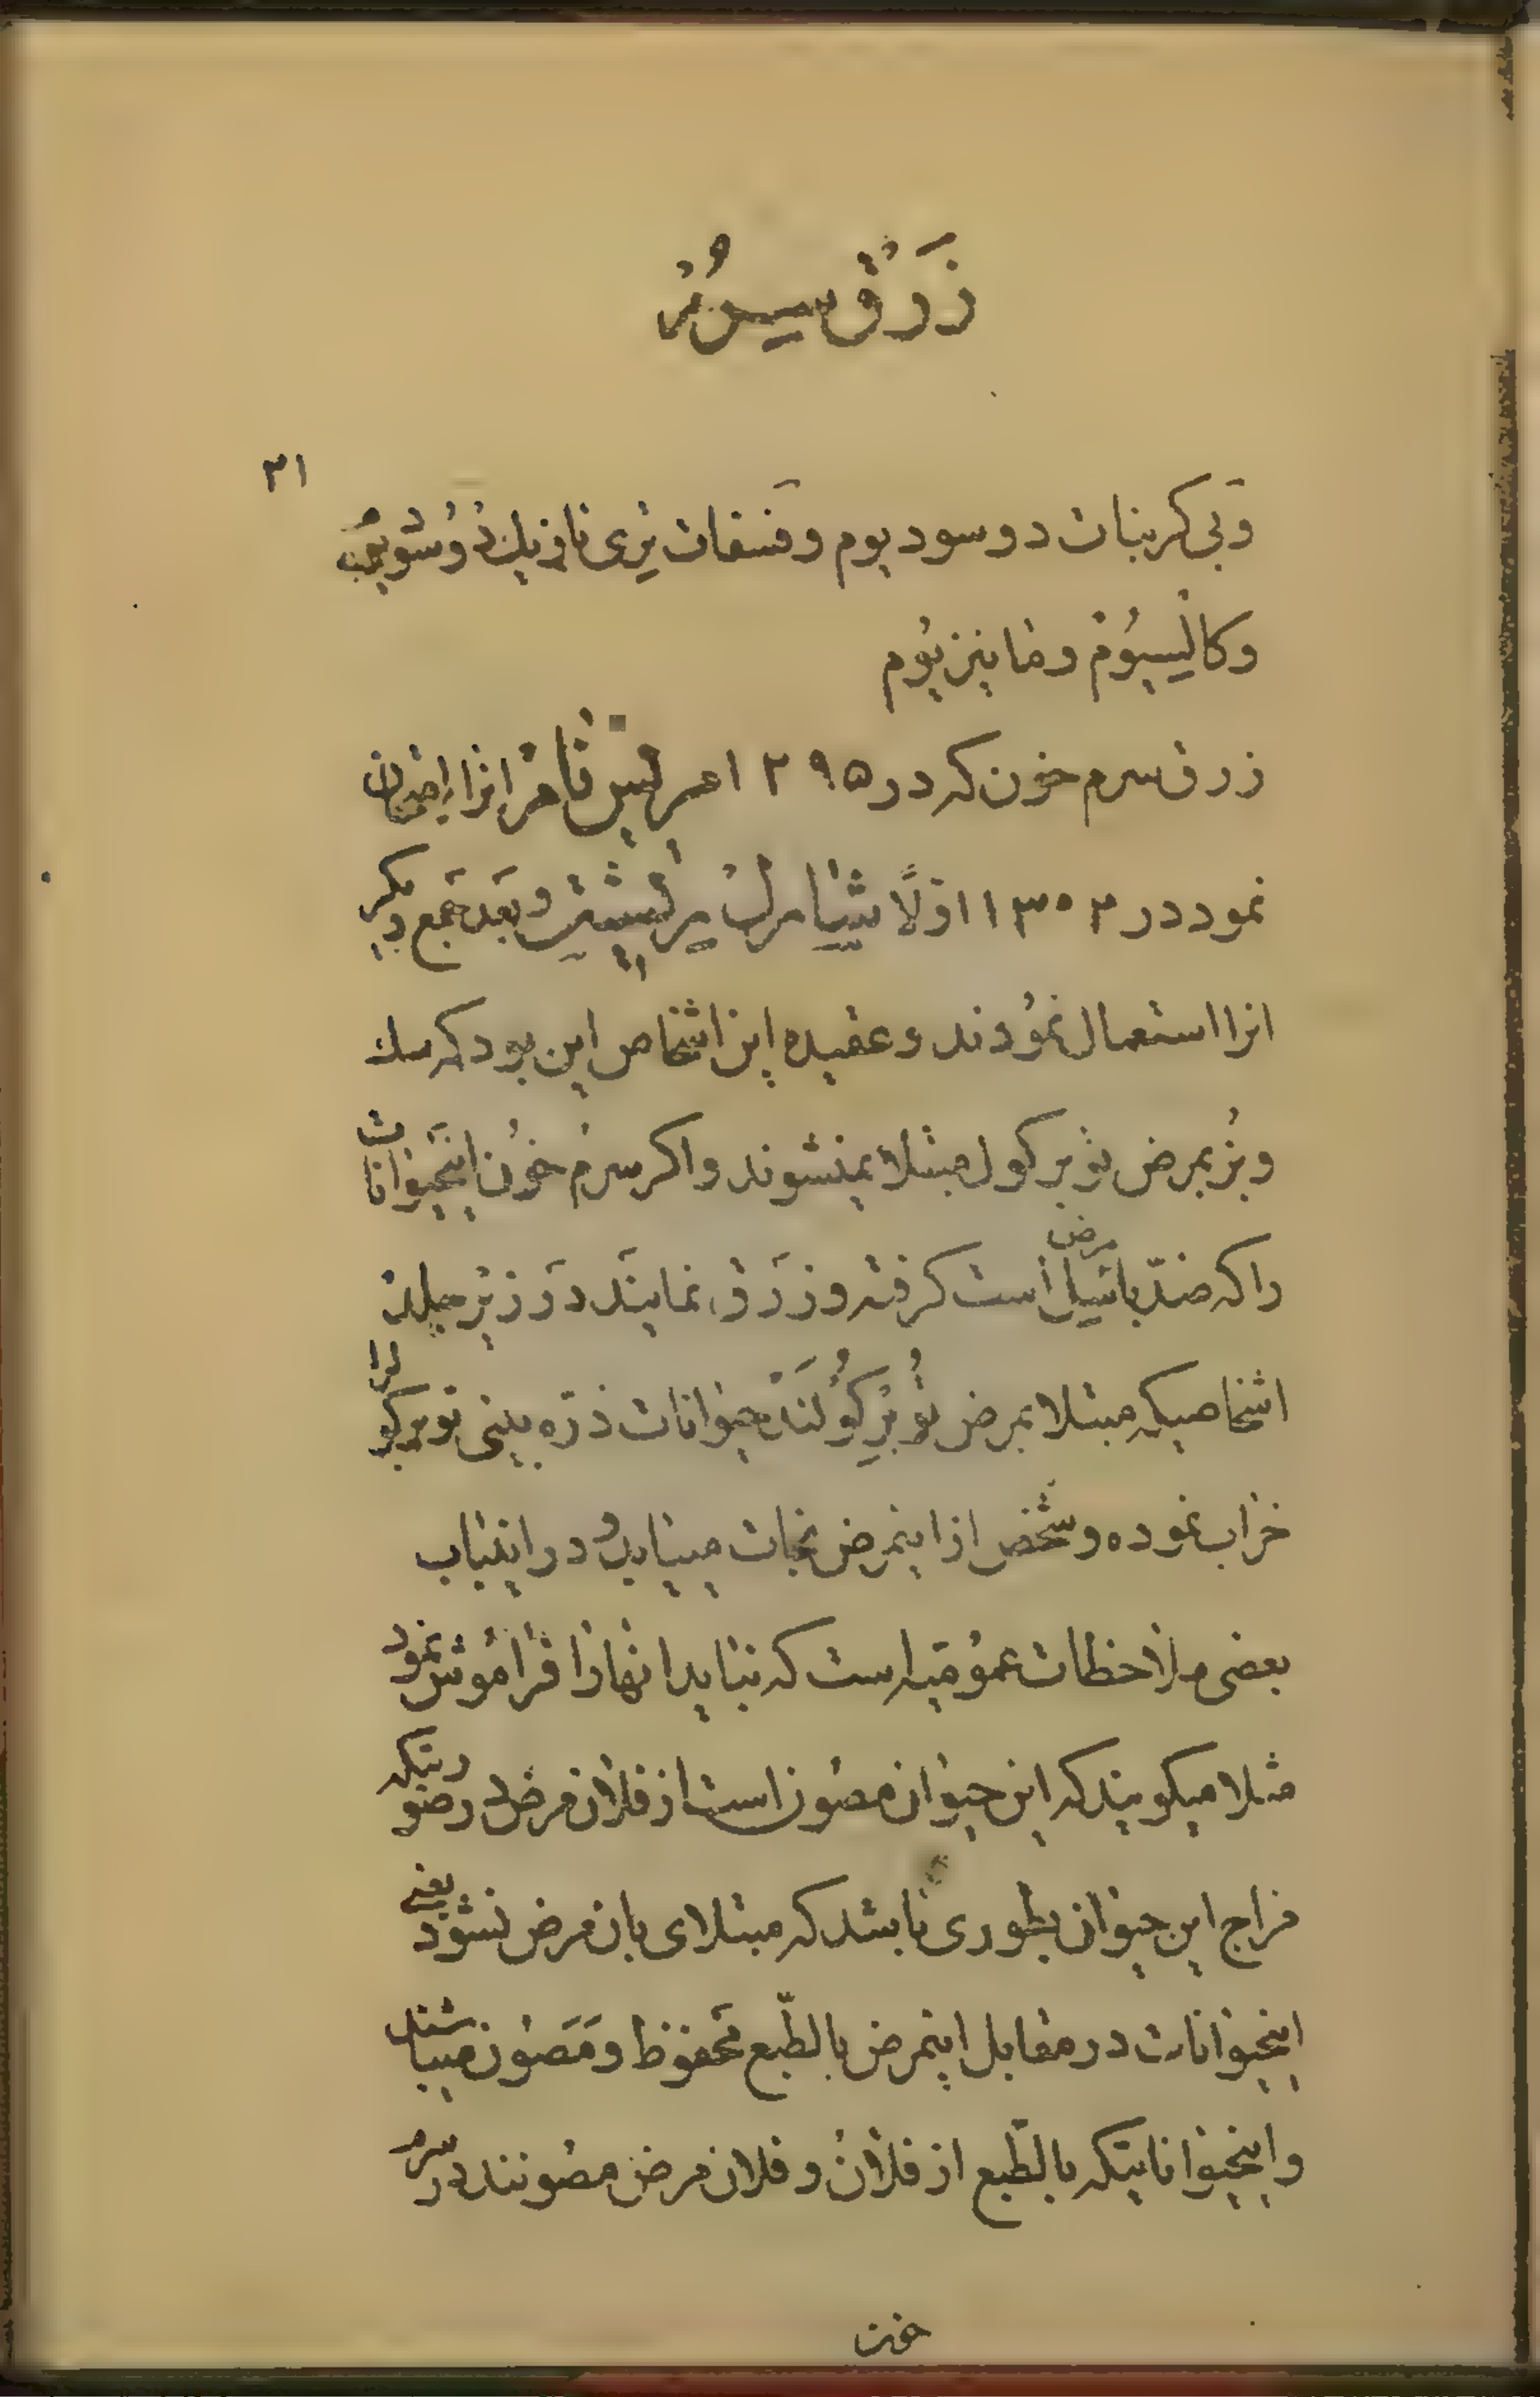 زَرْق سِرُمْ
۳۱
وَبی کربنات دوسودیوم وفَسفات تِری بازیك دُوسُودیوم
وکالْسِیُومْ ومانیزیُوم
زرق سرم خون که در ۱۲۹۵ انرا اختراع
نمود در ۱۳۰۲ اوّلاً وبَعد جَمع دیگر
انرا استعمال نمُودند وعقیده این اشخاص این بود که سك
وبُز بمرض توبرکول مبتلا نمیشوند واکر سرم خُون اینَحیوانات
را که ضدّ باسیل مرض است کرفته وزَرق نمایَند دَر زیر جلد
اشخاصیکه مبتلا بمرض تُوبِرکُولَند حیوانات ذرّه بینی توبرکولی
خراب نموده وشَخص از اینمرض نجات مییابد ودر اینباب
بعضی ملاحظات عمُومیّه است که نباید انها را فرامُوش نمود
مثلا میکویند که این حیوان مصون است از فلان مرض در صورتیکه
مزاج این حیوان بطوری باشد که مبتلای بان مرض نشود یعنی
اینحیوانات در مقابل اینمرض بالطّبع مَحفوظ ومَصَون میباشند
واینحیواناتیکه بالطّبع از فلان وفلان مرض مصونند در سرم
خون